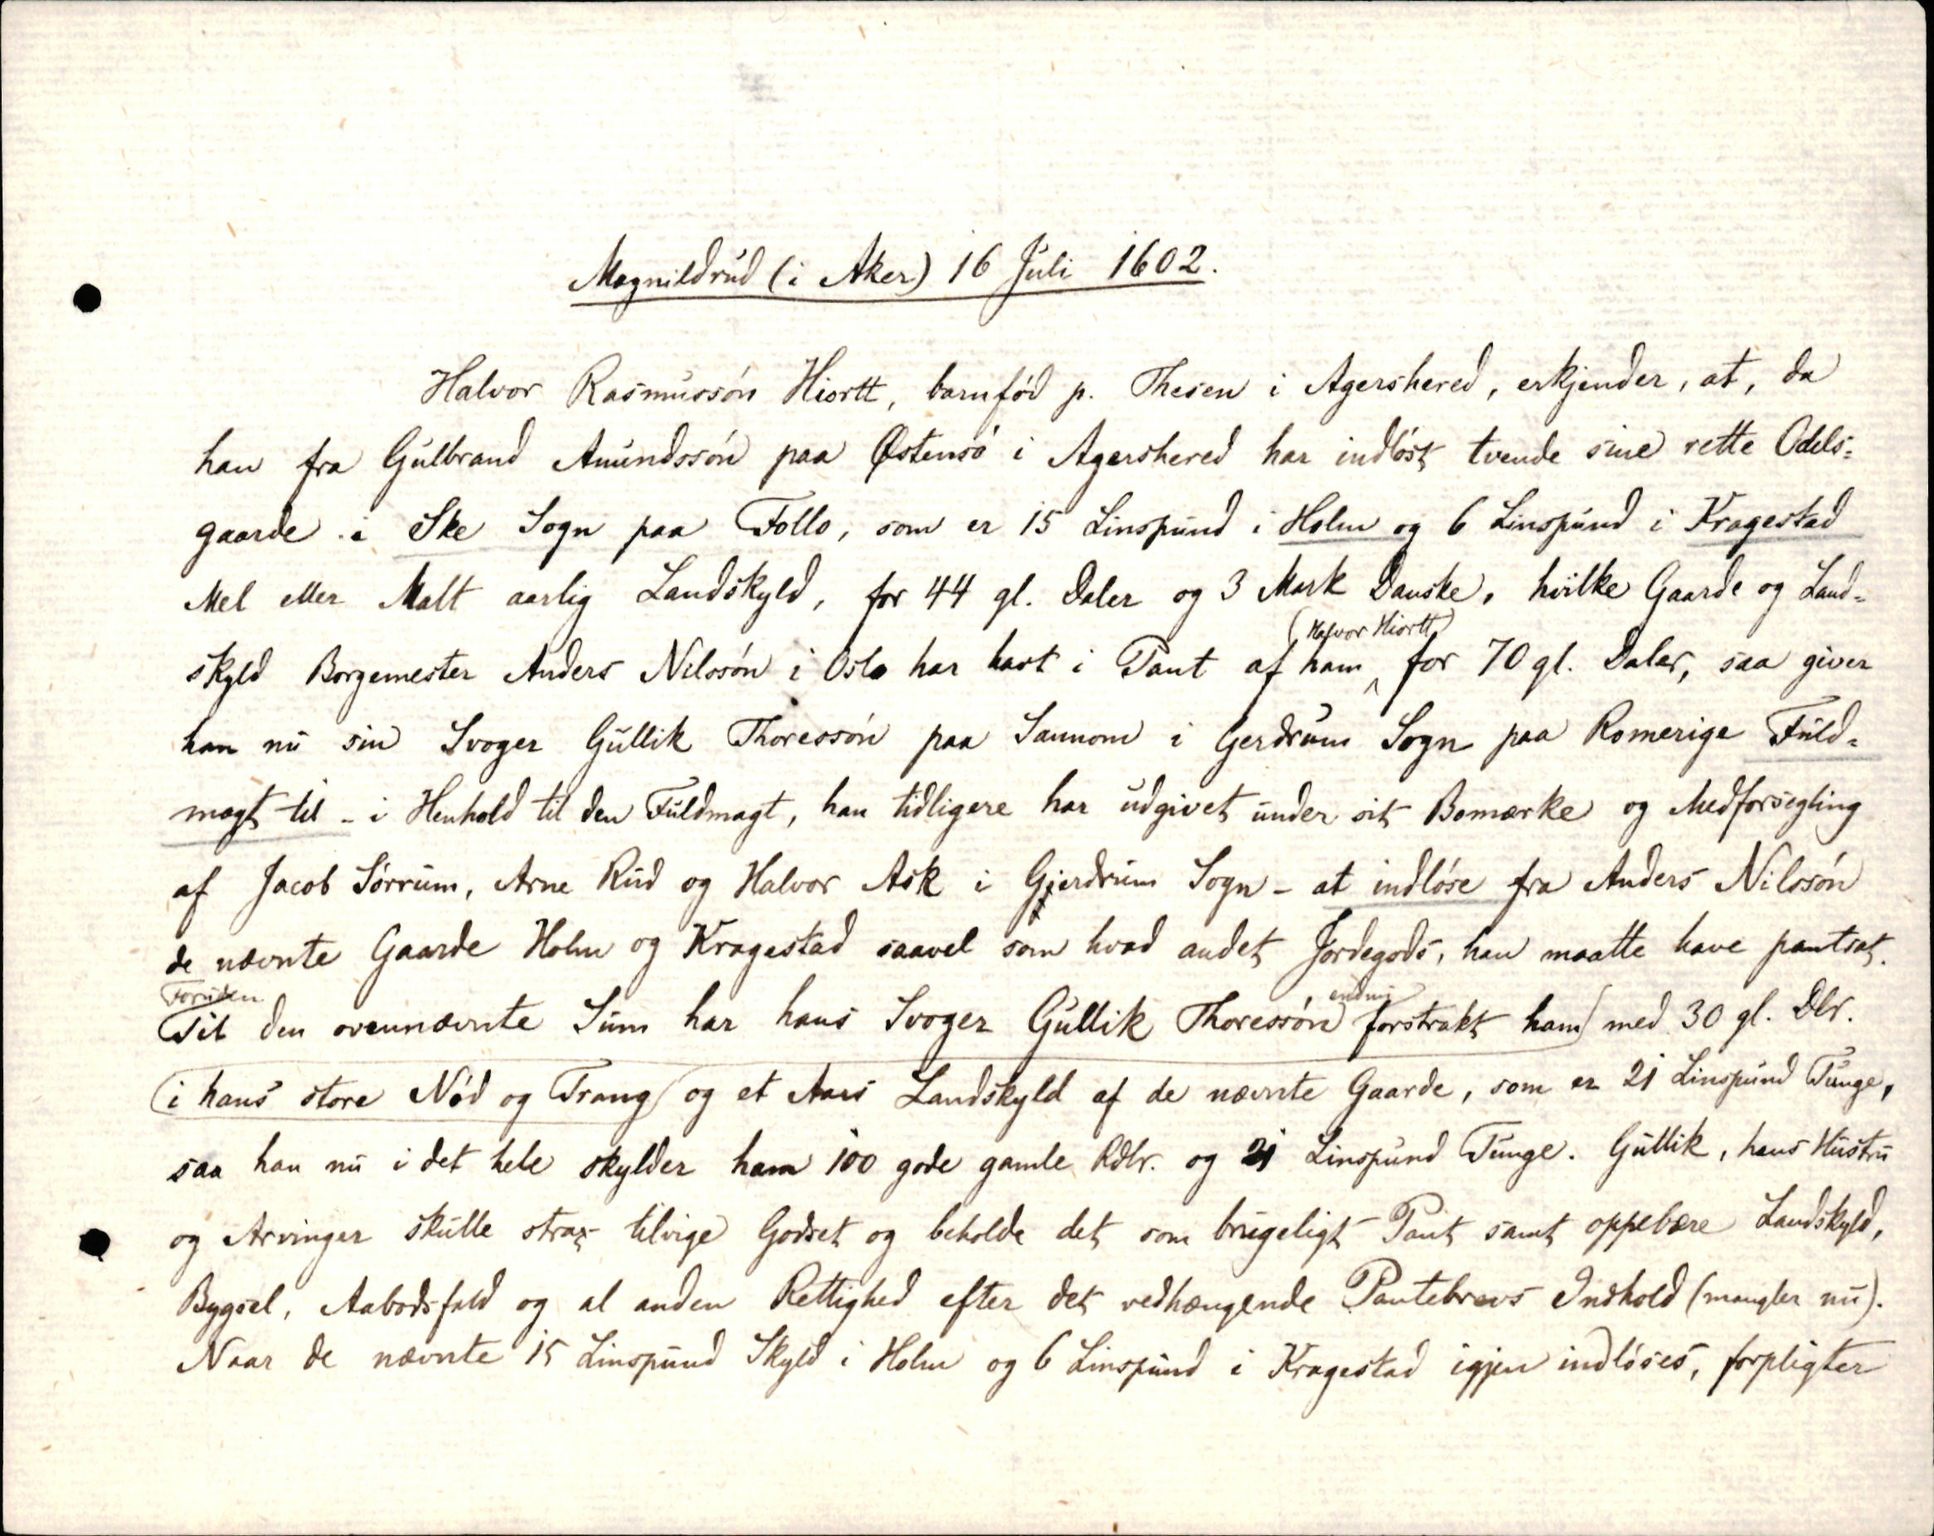 Magnildrud (i Aker) 16 Juli 1602.
Halvor Rasmussön Hiortt, barnföd p. Thesen i Agershered, erkjender, at, da
han fra Gulbrand Amundssön paa Østensö i Agershered har indlöst tvende sine rette Odels=
gaarde i Ske Sogn paa Follo, som er 15 Linspund i Holm og 6 Linspund i Kragestad
Mel eller Malt aarlig Landskyld, for 44 gl. Daler og 3 Mark Danske, hvilke Gaarde og Land=
(Halvor Hiortt)
skyld Borgemester Anders Nilssön i Oslo har havt i Pant af ham for 70 gl. Daler, saa giver
han nu sin Svoger Gullik Thoressön paa Sannom i Gerdrum Sogn paa Romerige Fuld=
magt til - i Henhold til den Fuldmagt, han tidligere har udgivet under sit Bomærke og Medforsegling
af Jacob Sörrum, Arne Rud og Halvor Ask i Gjerdrum Sogn - at indlöse fra Anders Nilssön
de nævnte Gaarde Holm og Kragestad saavel som hvad andet Jordegods, han maatte have pantsat.
Foruden endnu
Til den ovennævnte Sum har hans Svoger Gullik Thoressön forstrakt ham med 30 gl. Dlr.
(i hans store Nöd og Trang) og et Aars Landskyld af de nævnte Gaarde, som er 21 Linspund Tunge,
saa han nu i det hele skylder ham 100 gode gamle Rdlr. og 21 Linspund Tunge. Gullik, hans Hustru
og Arvinger skulle strax tilvige Godset og beholde det som brugeligt Pant samt oppebære Landskyld,
Bygsel, Aabodsfald og al anden Rettighed efter det vedhængende Pantebrevs Indhold (mangler nu).
Naar de nævnte 15 Linspund Skyld i Holm og 6 Linspund i Kragestad igjen indlöses, forpligter